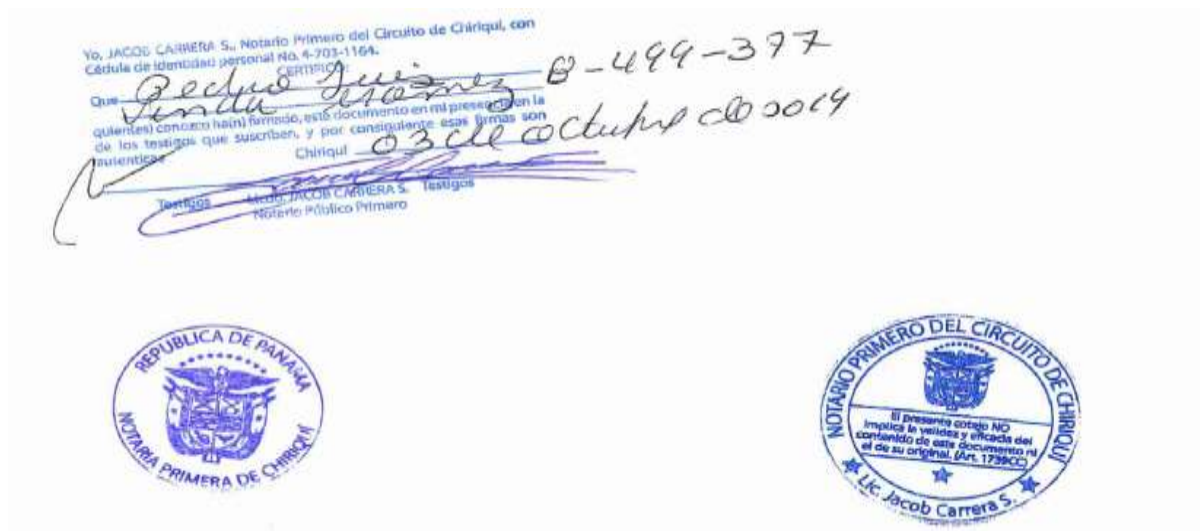 Yo, JACOB CARRERA S., Notario Primero del Circuito de Chiriquí, con
Cédula de identidad personal No. 4-703-1164.
CERTIFICO:
Que Pedro Luis 8-499-377
quien(es) conozco ha(n) firmado, este documento en mi presencia en la
de los testigos que suscriben, y por consiguiente esas firmas son
autenticas
Chiriquí 03 de octubre de 2019
Testigos Licdo. JACOB CARRERA S. Testigos
Notario Público Primero
REPUBLICA DE PANAMA
NOTARIA PRIMERA DE CHIRIQUÍ
NOTARIO PRIMERO DEL CIRCUITO DE CHIRIQUÍ
El presente cotejo NO
implica la validez y eficacia del
contenido de este documento ni
el de su original. (Art. 1739CC)
Lic. Jacob Carrera S.